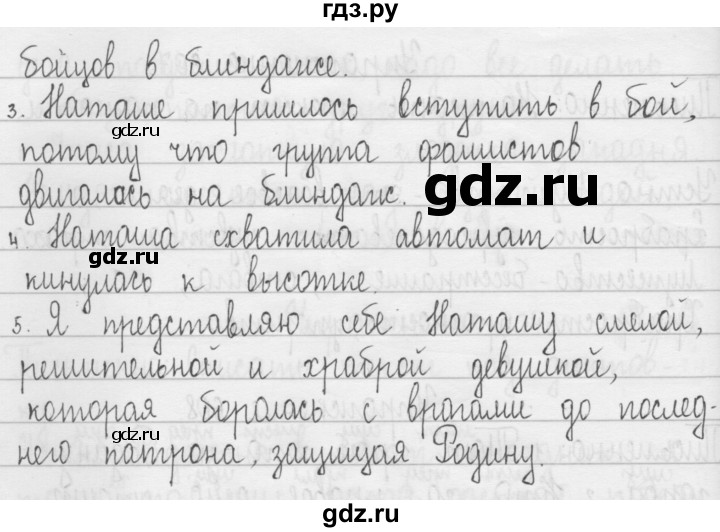 гдз.ру
бойцов в блиндаже.
3. Наташе пришлось вступить в бой,
gdz.ru
потому что группа фашистов
двигалась на блиндаж.
gdz.ru
4. Наташа схватила автомат и
gdz.ru
кинулась к высотке.
5. Я представляю себе Наташу смелой,
решительной и храброй девушкой,
которая боролась врагами до послед-
него патрона, защищая Родину.
gdz.ru